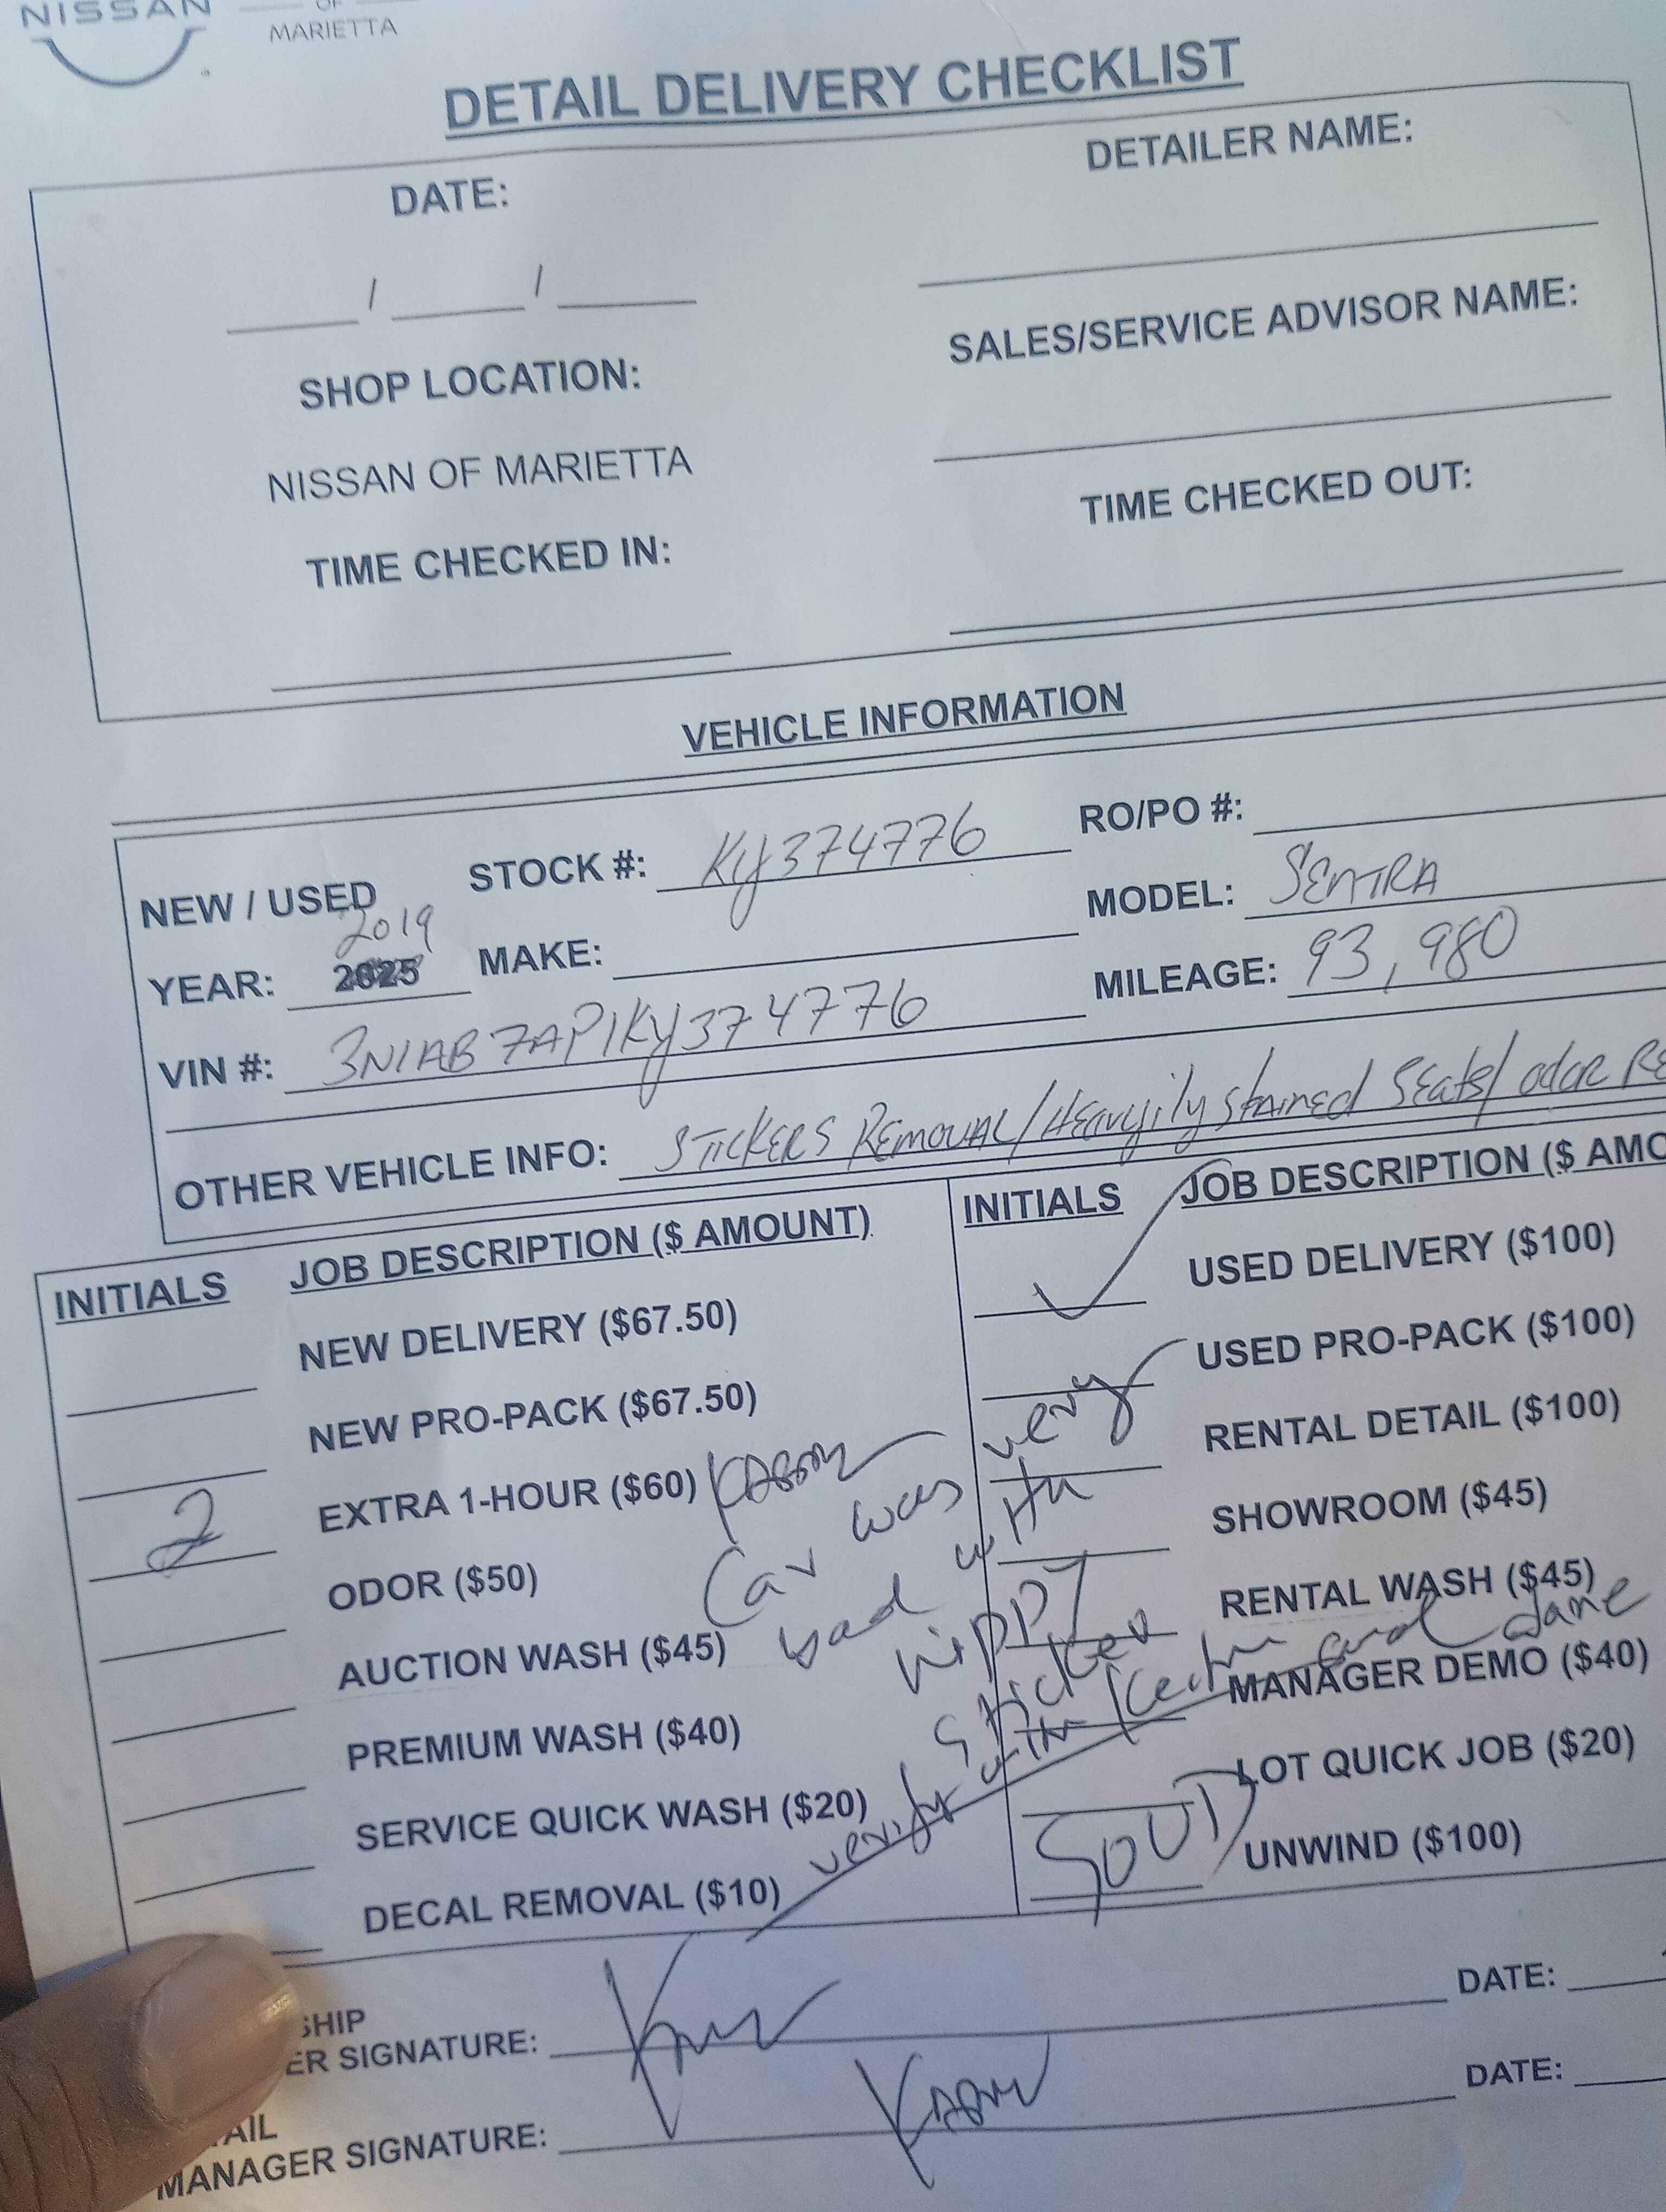 NISSAN
OF
MARIETTA
DETAIL DELIVERY CHECKLIST
DATE:
DETAILER NAME:
/ /
SHOP LOCATION:
SALES/SERVICE ADVISOR NAME:
NISSAN OF MARIETTA
TIME CHECKED IN:
TIME CHECKED OUT:
VEHICLE INFORMATION
NEW / USED STOCK #: KY374776 RO/PO #:
2019
YEAR: 2025 MAKE: MODEL: SENTRA
VIN #: 3N1AB7AP1KY374776 MILEAGE: 93,980
OTHER VEHICLE INFO: STICKERS REMOVAL/HEAVYILY STAINED SEATS/ ODOR RE
INITIALS JOB DESCRIPTION ($ AMOUNT) INITIALS JOB DESCRIPTION ($ AMO
NEW DELIVERY ($67.50) ✓ USED DELIVERY ($100)
NEW PRO-PACK ($67.50) USED PRO-PACK ($100)
2 EXTRA 1-HOUR ($60) RENTAL DETAIL ($100)
ODOR ($50) SHOWROOM ($45)
AUCTION WASH ($45) RENTAL WASH ($45)
PREMIUM WASH ($40) MANAGER DEMO ($40)
SERVICE QUICK WASH ($20) LOT QUICK JOB ($20)
DECAL REMOVAL ($10) UNWIND ($100)
Car was very
bad with
Sticker
verify with and
SHIP
ER SIGNATURE: DATE:
AIL
MANAGER SIGNATURE: DATE: